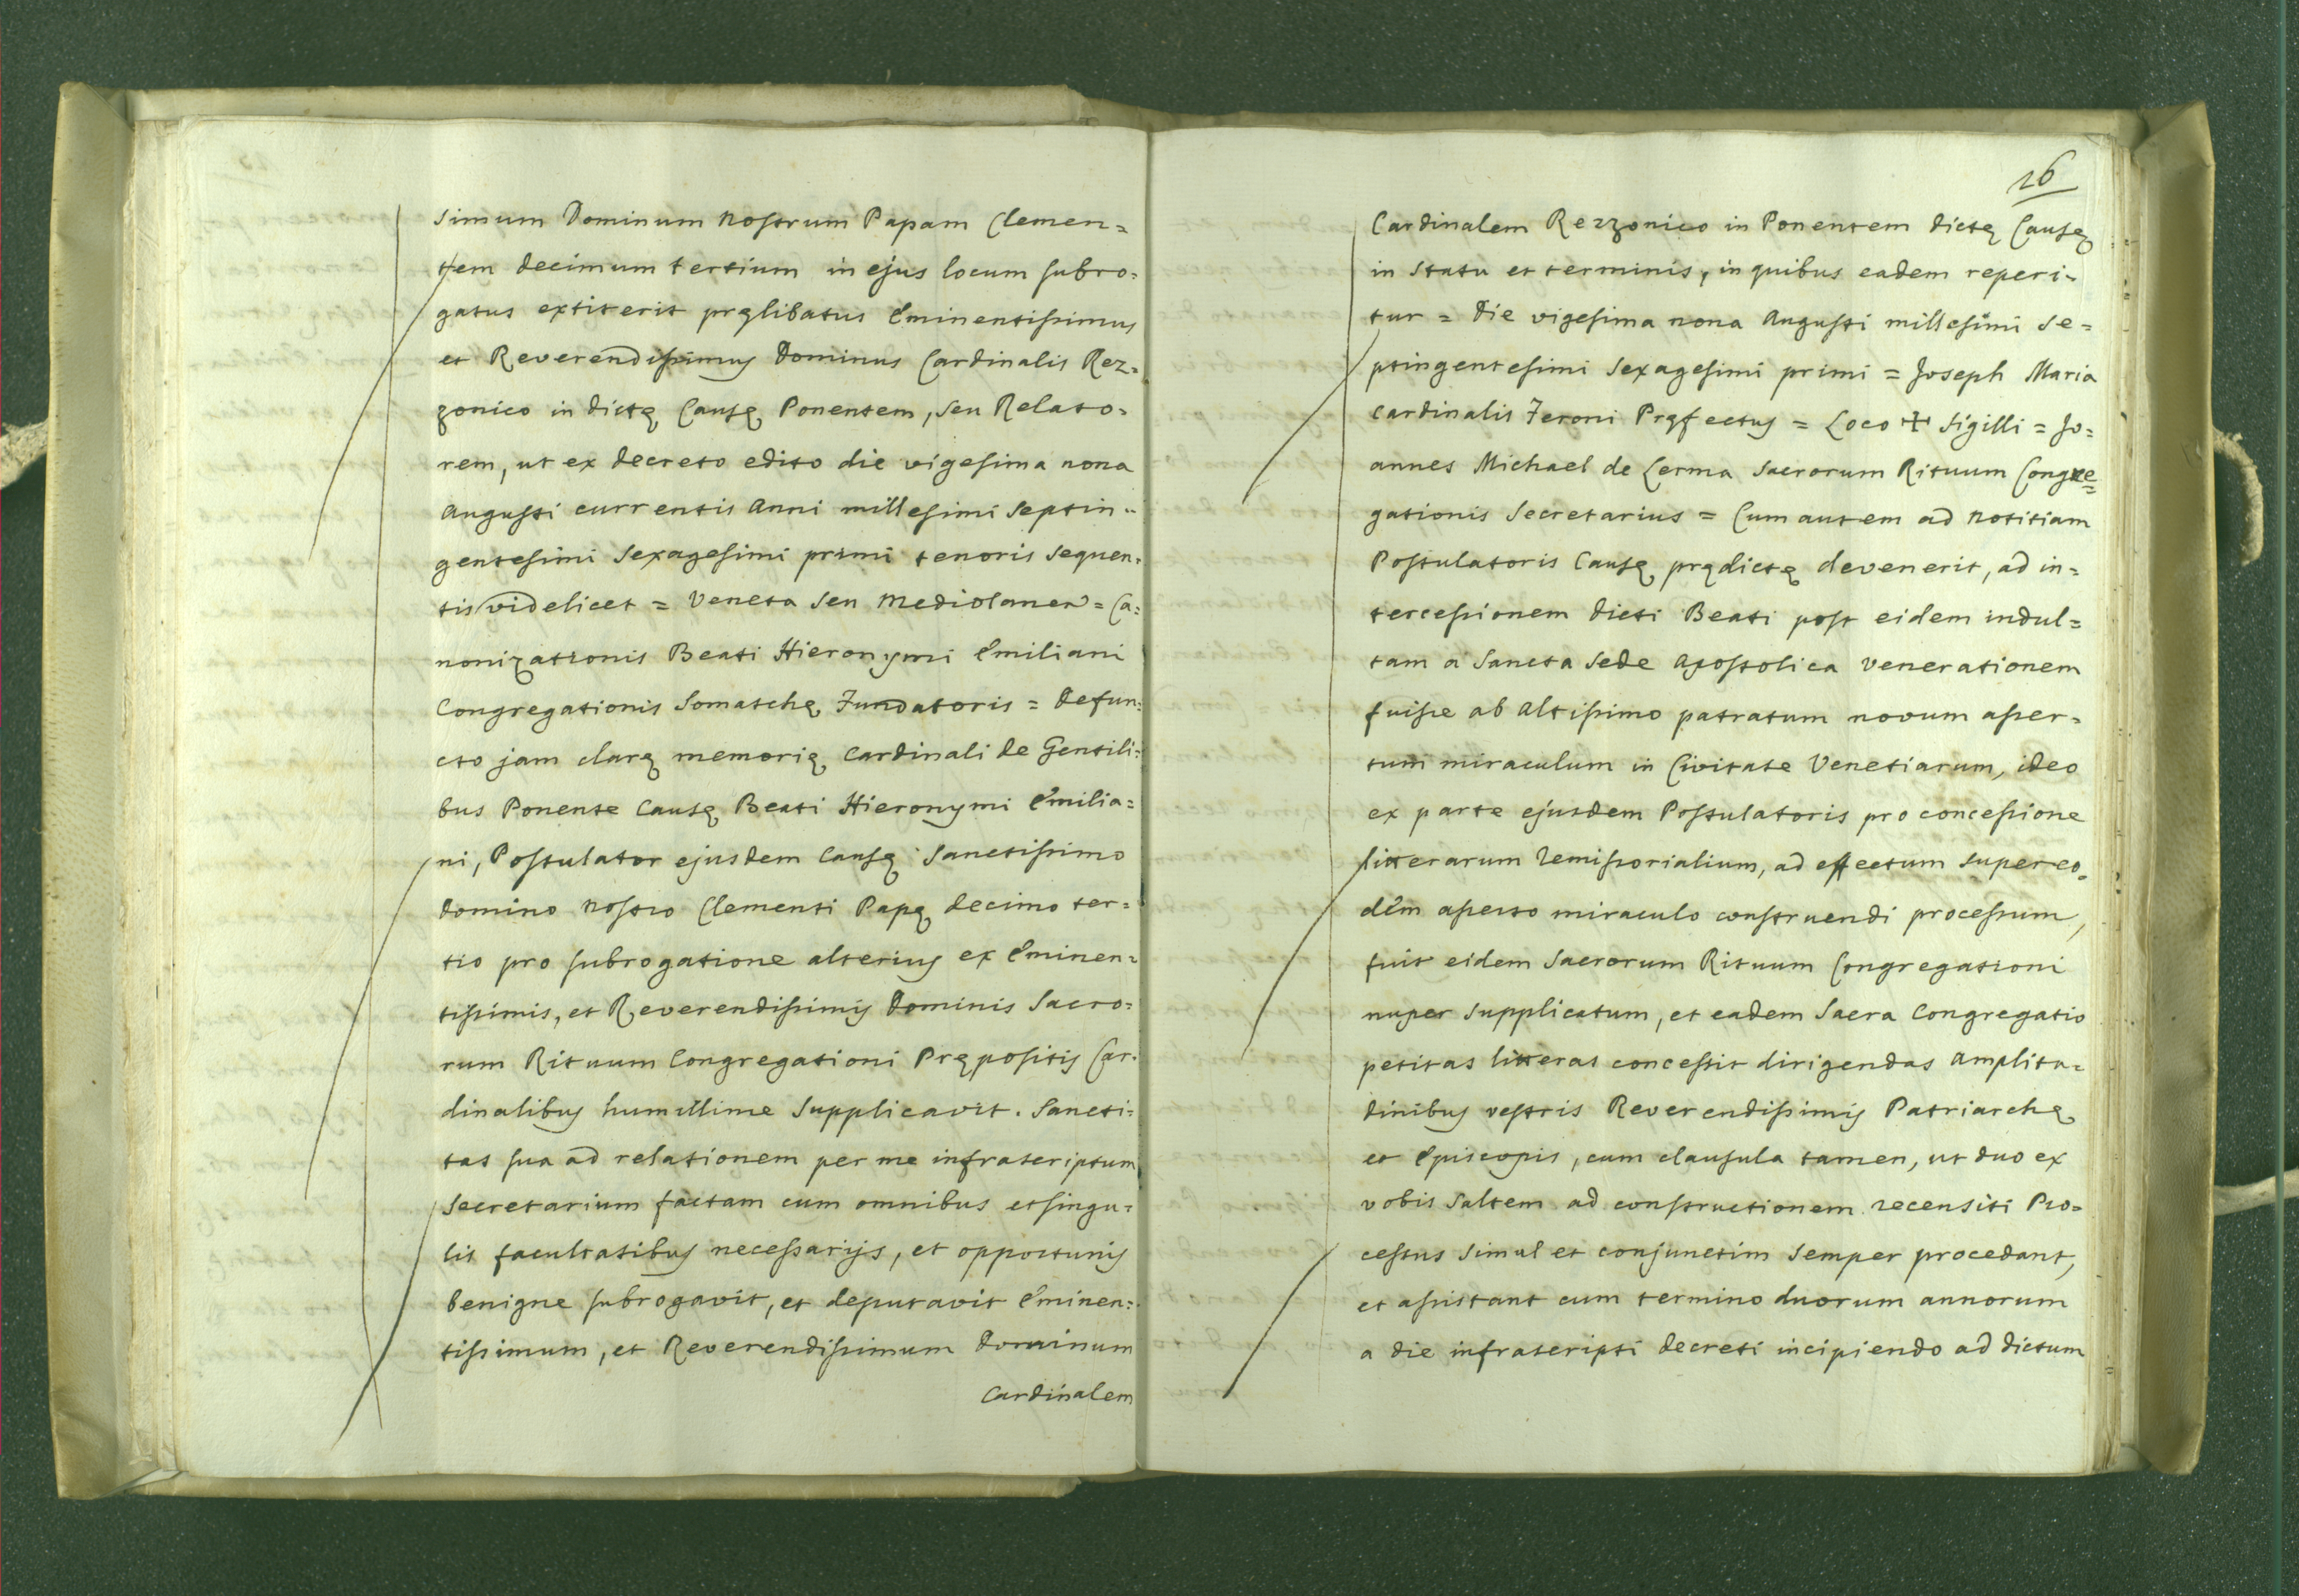 simum Dominum Nostrum Papam Clemen=
tem decimum tertium in ejus locum subro=
gatus extiterit pręlibatus Eminentissimus
et Reverendissimus Dominus Cardinalis Rez=
zonico in dictę Causę Ponentem, seu Relato=
rem, ut ex decreto edito die vigesima nona
Augusti currentis Anni millesimi septin=
gentesimi sexagesimi primi tenoris sequen=
tis videlicet = Veneta seu Mediolanen = Ca=
nonizationis Beati Hieronymi Emiliani
Congregationis Somaschę Fundatoris = Defun=
cto jam clarę memorię Cardinali de Gentili=
bus Ponente Causę Beati Hieronymi Emilia=
ni, Postulator ejusdem Causę Sanctissimo
Domino Nostro Clementi Papę decimo ter=
tio pro subrogatione alterius ex Eminen=
tissimis, et Reverendissimis Dominis Sacro=
rum Rituum Congregationi Prępositis Car=
dinalibus humillime supplicavit. Sancti=
tas sua ad relationem per me infrascriptum
Secretarium factam cum omnibus et singu=
lis facultatibus necessarijs, et opportunis
benigne subrogavit, et deputavit Eminen=
tissimum, et Reverendissimum Dominum
Cardinalem
26
Cardinalem Rezzonico in Ponentem dictę Causę
in statu et terminis, in quibus eadem reperi=
tur = Die vigesima nona Augusti millesimi se=
ptingentesimi sexagesimi primi = Joseph Maria
Cardinalis Feroni Pręfectus = Loco + Sigilli = Jo=
annes Michael de Lerma Sacrorum Rituum Congre=
gationis Secretarius = Cum autem ad notitiam
Postulatoris Causę prędictę devenerit, ad in=
tercessionem dicti Beati post eidem indul=
tam a Sancta Sede Apostolica venerationem
fuisse ab Altissimo patratum novum asser=
tum miraculum in Civitate Venetiarum, ideo
ex parte ejusdem Postulatoris pro concessione
litterarum remissorialium, ad effectum super eo=
dem asserto miraculo construendi processum,
fuit eidem Sacrorum Rituum Congregationi
nuper supplicatum, et eadem Sacra Congregatio
petitas litteras concessit dirigendas Amplitu=
dinibus vestris Reverendissimis Patriarchę
et Episcopis, cum clausula tamen, ut duo ex
vobis saltem ad constructionem recensiti Pro=
cessus simul et conjunctim semper procedant,
et assistant cum termino duorum annorum
a die infrascripti decreti incipiendo ad dictum